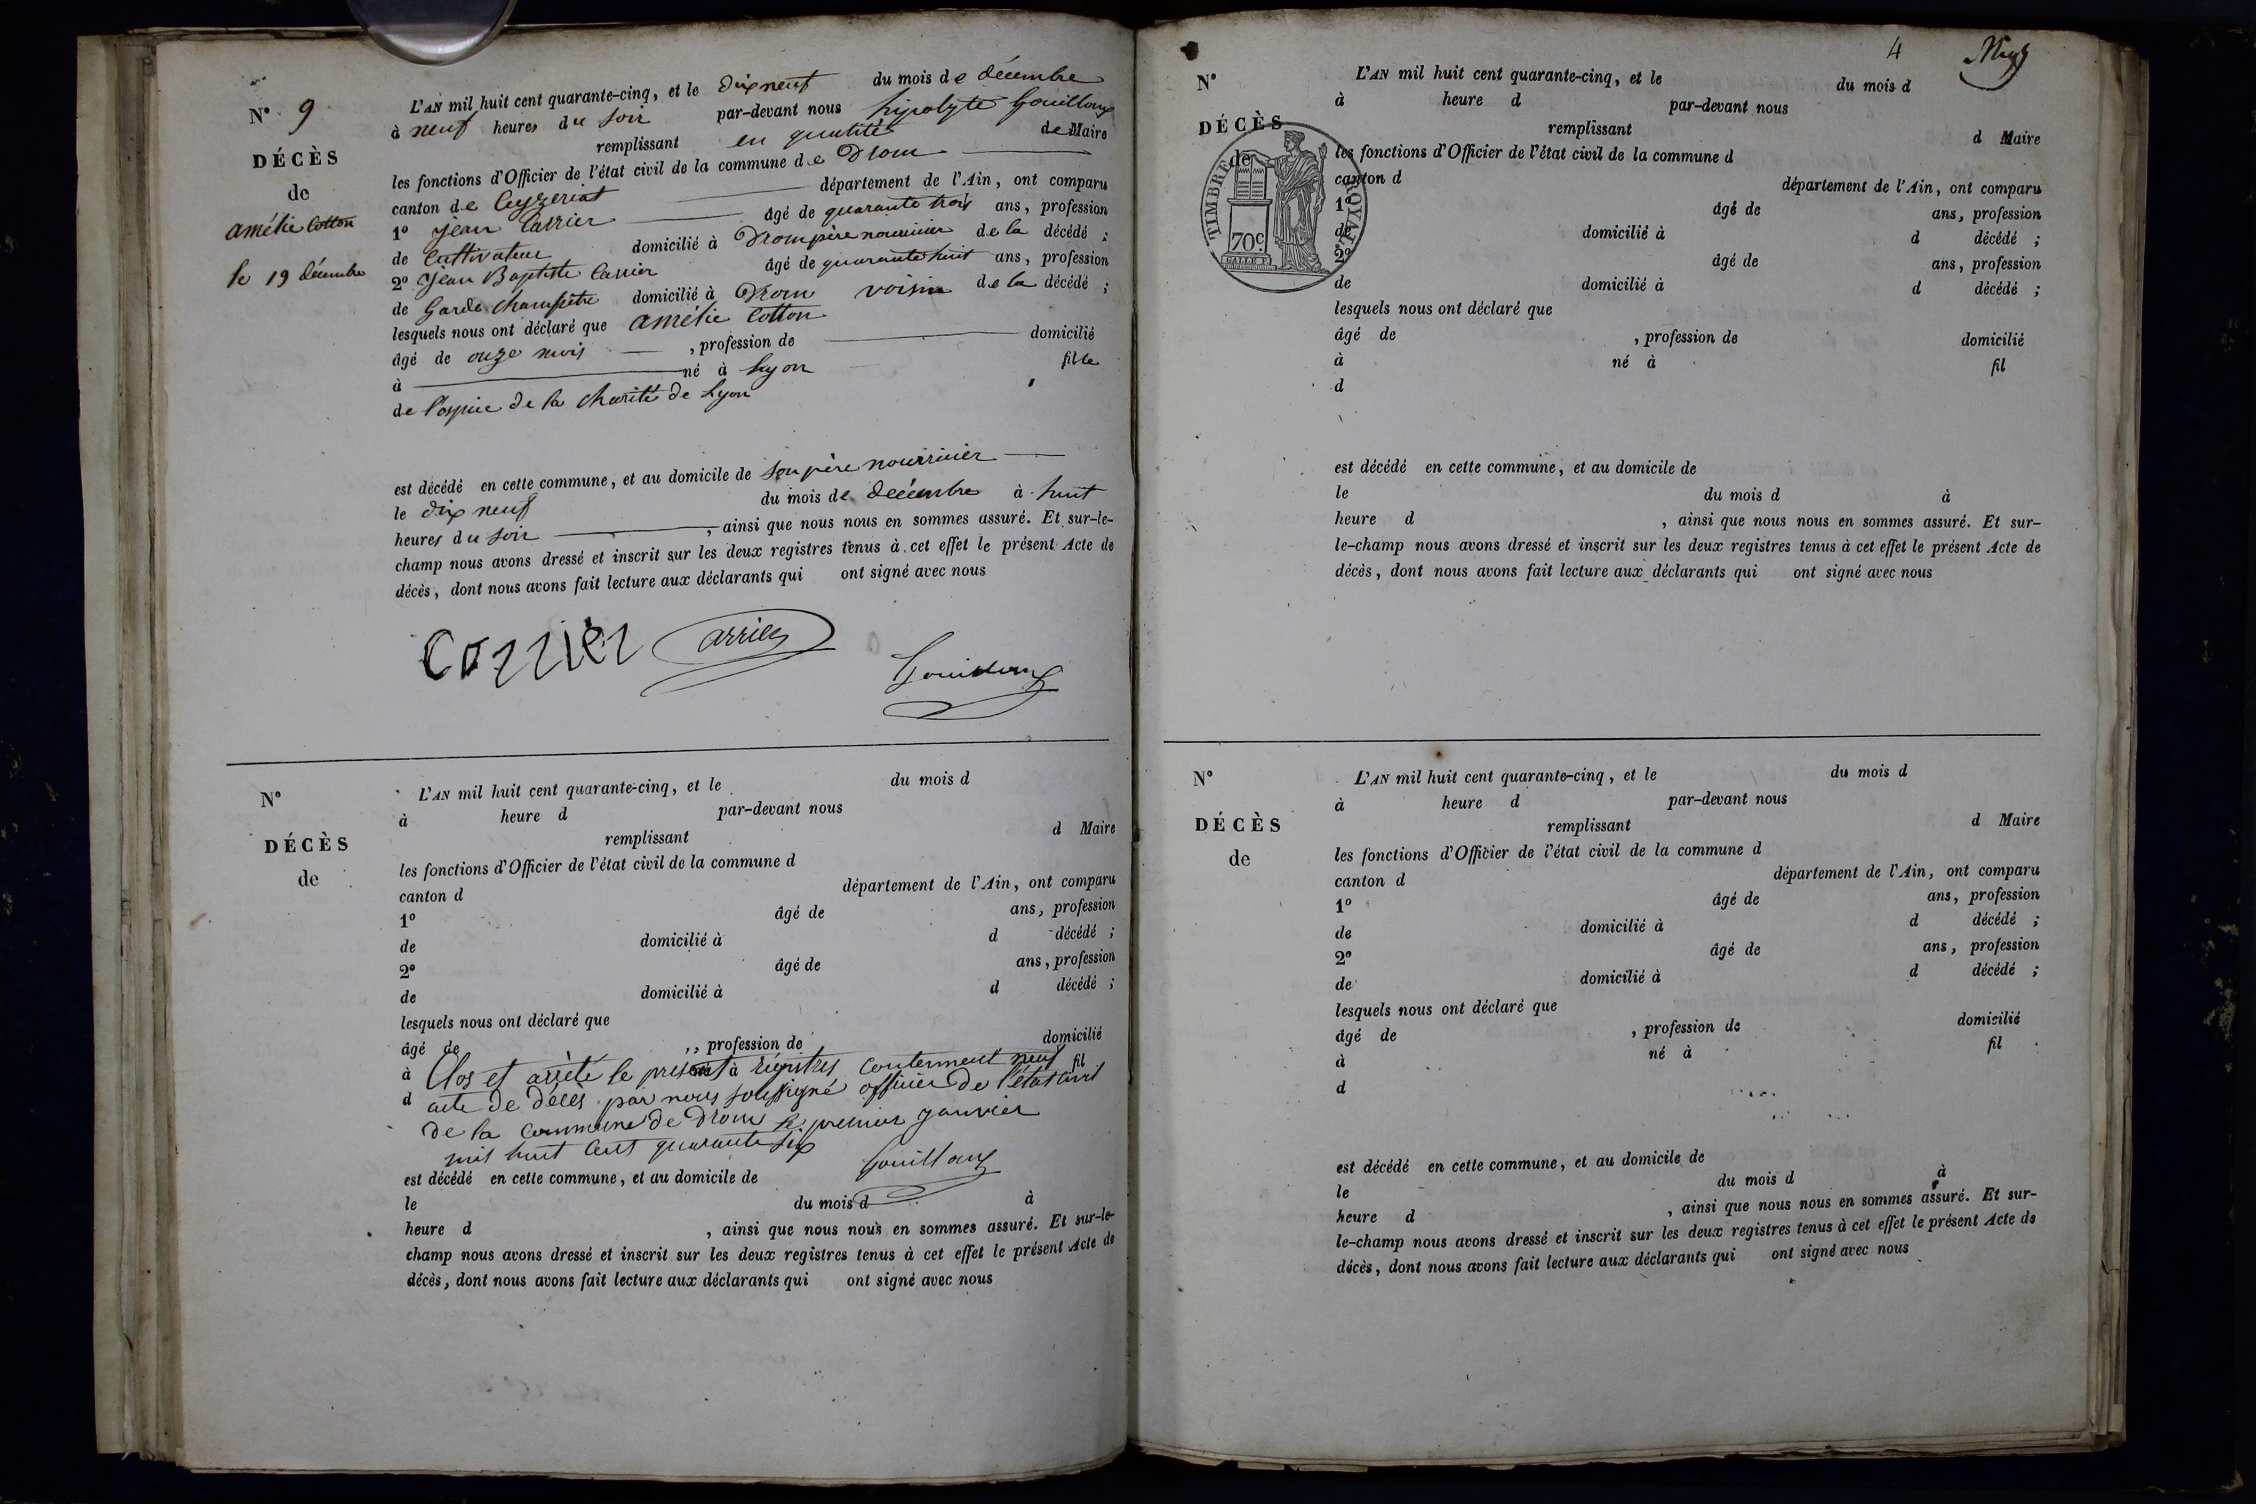 N° 9
DÉCÈS
de
amélie Cotton
le 19 décembre
L'AN mil huit cent quarante-cinq, et le dix neuf du mois de décembre
à neuf heures du soir par-devant nous hipolyte Gouilloux
remplissant en qualité de Maire
les fonctions d'Officier de l'état civil de la commune de Drom
canton de Ceyzeriat département de l'Ain, ont comparu
1° jean Carrier âgé de quarante trois ans, profession
de Cultivateur domicilié à Drom père nourricier de la décédé ;
2° jean Baptiste Carrier âgé de quarante huit ans, profession
de Garde champêtre domicilié à Drom voisin de la décédé ;
lesquels nous ont déclaré que amélie Cotton
âgé de onze mois , profession de domicilié
à né à Lyon fille
de l'ospice de la charité de Lyon
est décédé en cette commune, et au domicile de son père nourricier
le dix neuf du mois de decembre à huit
heures du soir , ainsi que nous nous en sommes assuré. Et sur-le-
champ nous avons dressé et inscrit sur les deux registres tenus à cet effet le présent Acte de
décès, dont nous avons fait lecture aux déclarants qui ont signé avec nous
Carrier Carrier
Gouilloux
N°
DÉCÈS
de
L'AN mil huit cent quarante-cinq, et le du mois d
à heure d par-devant nous
remplissant d Maire
les fonctions d'Officier de l'état civil de la commune d
canton d département de l'Ain, ont comparu
1° âgé de ans, profession
de domicilié à d décédé ;
2° âgé de ans, profession
de domicilié à d décédé ;
lesquels nous ont déclaré que
âgé de , profession de domicilié
à né à fil
d
Clos et arrêté le présent régistres contennent neuf
acte de décès par nous soussigné officier de l'état civil
de la commune de Drom le premier janvier
mil huit cent quarante six
Gouilloux
est décédé en cette commune, et au domicile de
le du mois d à
heure d , ainsi que nous nous en sommes assuré. Et sur-le-
champ nous avons dressé et inscrit sur les deux registres tenus à cet effet le présent Acte de
décès, dont nous avons fait lecture aux déclarants qui ont signé avec nous
4
N°
DÉCÈS
de
TIMBRE ROYAL
70c
L'AN mil huit cent quarante-cinq, et le du mois d
à heure d par-devant nous
remplissant d Maire
les fonctions d'Officier de l'état civil de la commune d
canton d département de l'Ain, ont comparu
1° âgé de ans, profession
de domicilié à d décédé ;
2° âgé de ans, profession
de domicilié à d décédé ;
lesquels nous ont déclaré que
âgé de , profession de domicilié
à né à fil
d
est décédé en cette commune, et au domicile de
le du mois d à
heure d , ainsi que nous nous en sommes assuré. Et sur-
le-champ nous avons dressé et inscrit sur les deux registres tenus à cet effet le présent Acte de
décès, dont nous avons fait lecture aux déclarants qui ont signé avec nous
N°
DÉCÈS
de
L'AN mil huit cent quarante-cinq, et le du mois d
à heure d par-devant nous
remplissant d Maire
les fonctions d'Officier de l'état civil de la commune d
canton d département de l'Ain, ont comparu
1° âgé de ans, profession
de domicilié à d décédé ;
2° âgé de ans, profession
de domicilié à d décédé ;
lesquels nous ont déclaré que
âgé de , profession de domicilié
à né à fil
d
est décédé en cette commune, et au domicile de
le du mois d à
heure d , ainsi que nous nous en sommes assuré. Et sur-
le-champ nous avons dressé et inscrit sur les deux registres tenus à cet effet le présent Acte de
décès, dont nous avons fait lecture aux déclarants qui ont signé avec nous